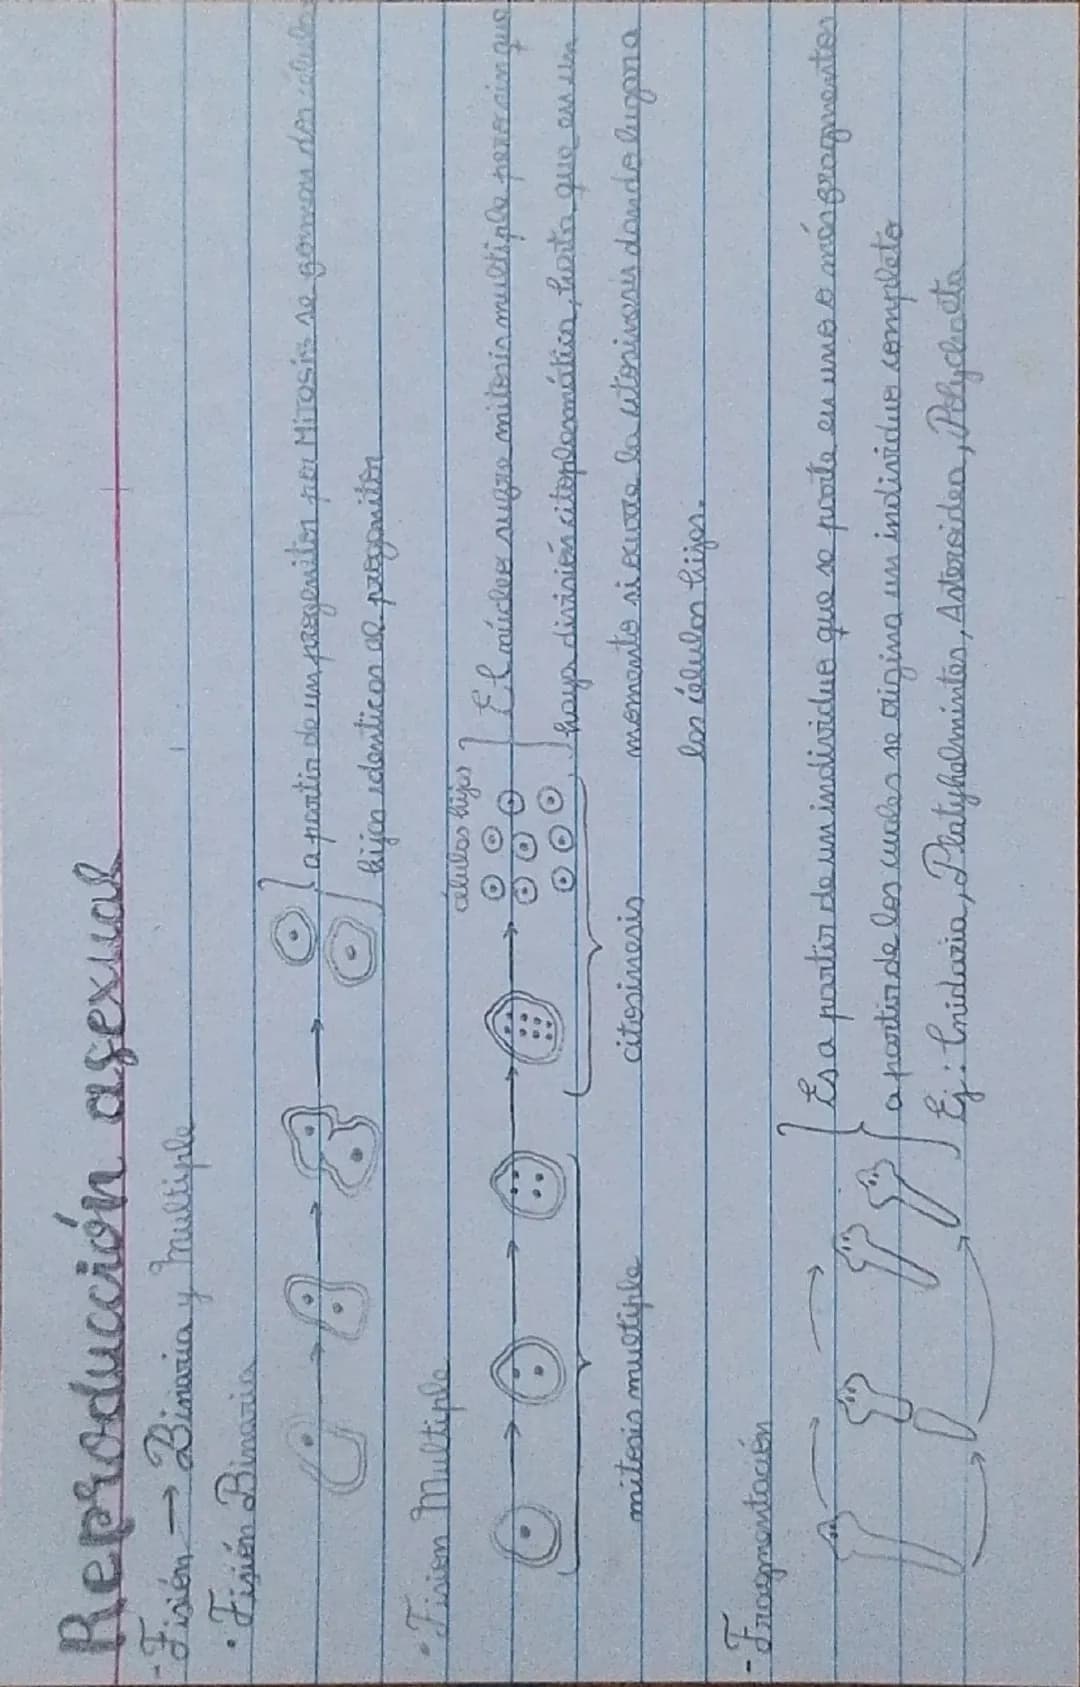 Reproducción asexual
- Fisión → Binaria y Multiple
· Fisión Binaria
a partir de un progenitor por MiTOSiS se forman dos células
hijas identicas al progenitor
· Fision Multiple
células hijas
El núcleo sufre mitosis multiple pero sin que
haya división citoplasmática, hasta que en un
mitosis multiple citosinesis momento si ocurre la citosinesis dando lugar a
las células hijas.
- Fragmentación
Es a partir de un individuo que se parte en uno o más fragmentos
a partir de los cuales se origina un individuo completo
Ej: Cnidaria, Platyhelmintes, Asteroidea, Polychaeta